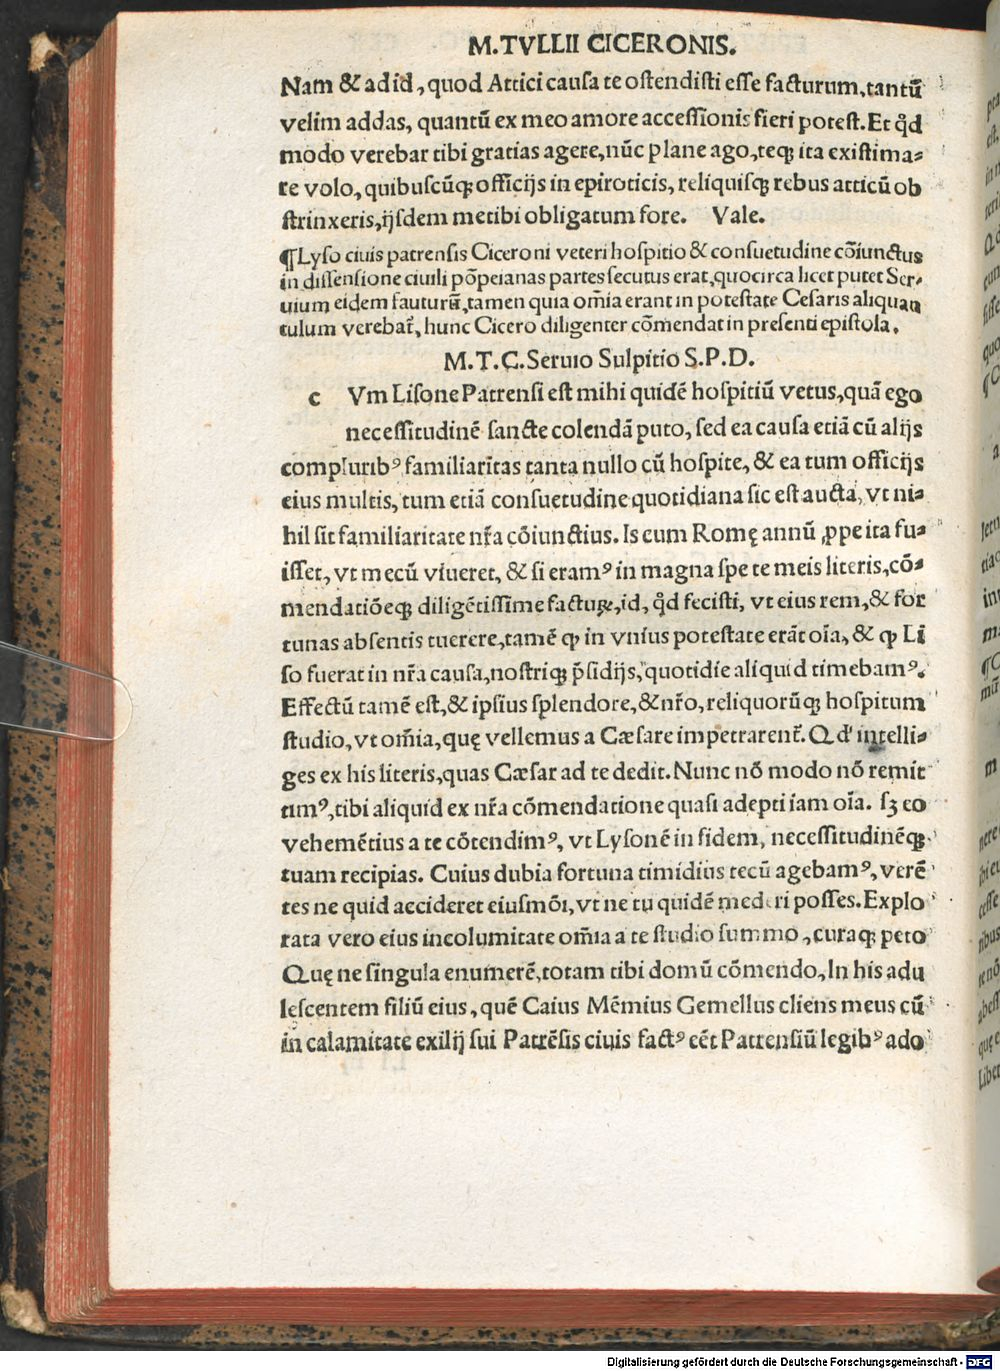 M.TVLLII CICERONIS.
Nam & ad id, quod Attici causa te ostendisti esse facturum, tantũ
velim addas, quantũ ex meo amore accessionis fieri potest. Et q̃d
modo verebar tibi gratias agere, nũc plane ago, teqʒ ita existima⸗
te volo, quibuscũqʒ officijs in epiroticis, reliquisqʒ rebus atticũ ob
strinxeris, ijsdem me tibi obligatum fore. Vale.
¶Lyso ciuis patrensis Ciceroni veteri hospitio & consuetudine cõiunctus
in dissensione ciuili põpeianas partes secutus erat, quocirca licet putet Ser⸗
uium eidem fauturũ, tamen quia om̃ia erant in potestate Cesaris aliquan
tulum verebat̃, hunc Cicero diligenter cõmendat in presenti epistola.
M.T.C. Seruio Sulpitio S.P.D.
c Vm Lisone Patrensi est mihi quidẽ hospitiũ vetus, quã ego
necessitudinẽ sancte colendã puto, sed ea causa etiã cũ alijs
compluribꝰ familiaritas tanta nullo cũ hospite, & ea tum officijs
eius multis, tum etiã consuetudine quotidiana sic est aucta, vt ni⸗
hil sit familiaritate nr̃a cõiunctius. Is cum Romę annũ ꝓpe ita fu⸗
isset, vt mecũ viueret, & si eramꝰ in magna spe te meis literis, cõ⸗
mendatiõeqʒ diligẽtissime facturꝝ, id, q̃d fecisti, vt eius rem, & for
tunas absentis tuerere, tamẽ ꝙ in vnius potestate erãt oĩa, & ꝙ Li
so fuerat in nr̃a causa, nostriqʒ p̃sidijs, quotidie aliquid timebamꝰ.
Effectũ tamẽ est, & ipsius splendore, & nr̃o, reliquorũqʒ hospitum
studio, vt om̃ia, quę vellemus a Cæsare impetrarent̃. Qd' intelli⸗
ges ex his literis, quas Cæsar ad te dedit. Nunc nõ modo nõ remit
timꝰ, tibi aliquid ex nr̃a cõmendatione quasi adepti iam oĩa. sʒ eo
vehemẽtius a te cõtendimꝰ, vt Lysonẽ in fidem, necessitudinẽqʒ
tuam recipias. Cuius dubia fortuna timidius tecũ agebamꝰ, verẽ
tes ne quid accideret eiusmõi, vt ne tu quidẽ mederi posses. Explo
rata vero eius incolumitate om̃ia a te studio summo, curaqʒ peto
Quę ne singula enumerẽ, totam tibi domũ cõmendo, In his adu
lescentem filiũ eius, quẽ Caius Mẽmius Gemellus cliens meus cũ
in calamitate exilij sui Patrẽsis ciuis factꝰ eẽt Patrensiũ legibꝰ ado
Digitalisierung gefördert durch die Deutsche Forschungsgemeinschaft - DFG